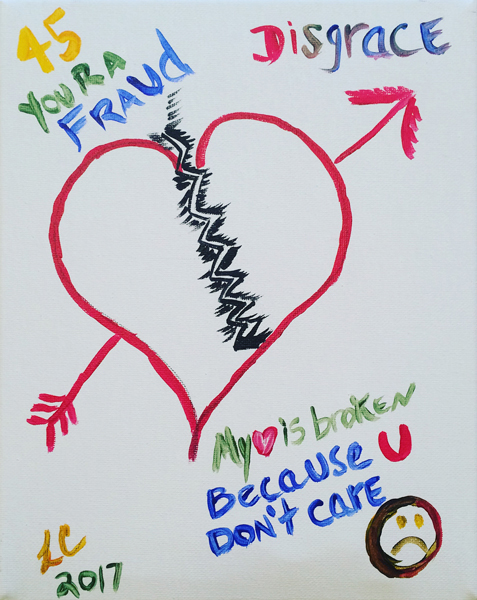 45
YOU R A
FRAUD
DisgRACE
My ❤ is broken
Because U
DON'T CARE
LC
2017